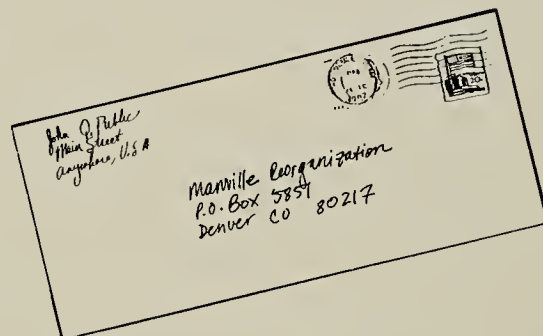 John Q. Public
Main Street
Anywhere, U.S.A
Manville Reorganization
P.O. Box 5851
Denver CO 80217